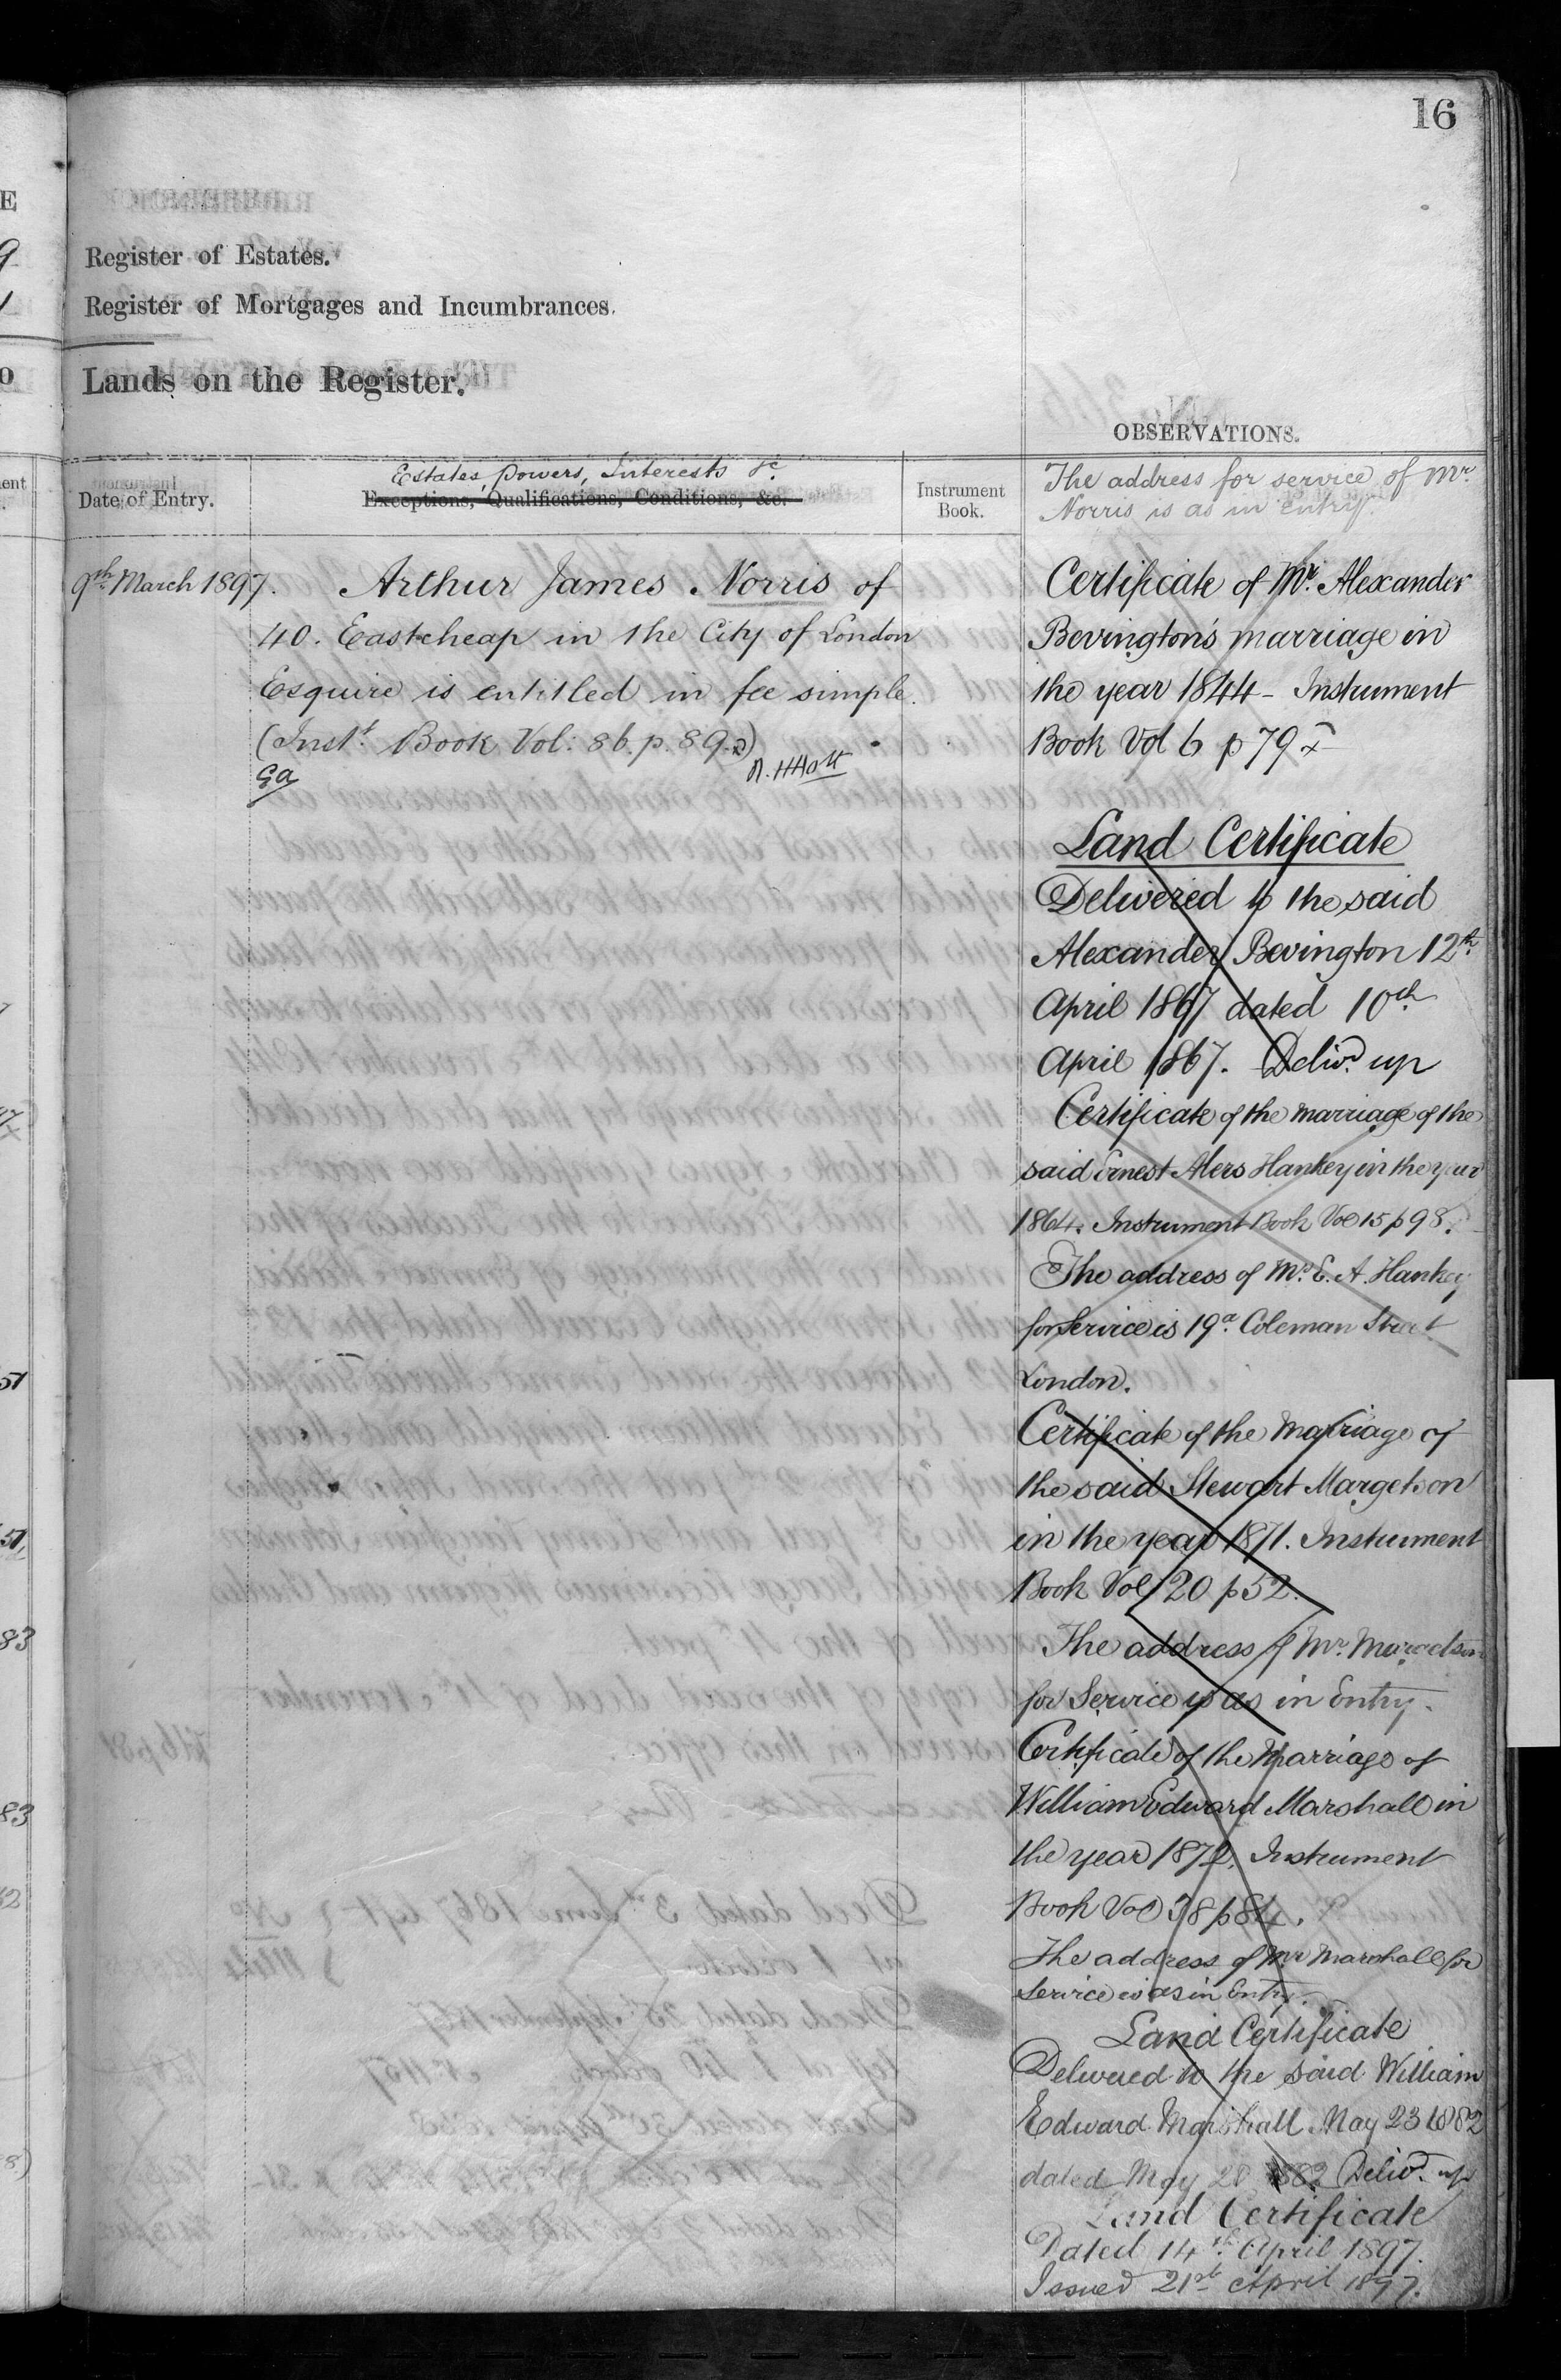 16
Register of Estates.
Register of Mortgages and Incumbrances.
Lands on the Register.
OBSERVATIONS.
Date of Entry.
Estates, Powers, Interests &c.
Exceptions, Qualifications, Conditions, &c.
Instrument
Book.
9th March 1897.
Arthur James Norris of
40. Eastcheap in the City of London
Esquire is entitled in fee simple.
(Inst. Book Vol: 86. p. 89.)
The address for service of Mr.
Norris is as in Entry.
Certificate of Mr. Alexander
Bevington's marriage in
the year 1844 - Instrument
Book Vol 6 p 79
Land Certificate
Delivered to the said
Alexander Bevington 12th
April 1867 dated 10th
April 1867. Delivd. up
Certificate of the marriage of the
said Ernest Alers Hankey in the year
1864. Instrument Book Vol 15 p 98.
The address of Mr. E. A. Hankey
for Service is 19a. Coleman Street
London.
Certificate of the Marriage of
the said Stewart Margetson
in the year 1871. Instrument
Book Vol 20 p 52.
The address of Mr. Margetson
for Service is as in Entry.
Certificate of the Marriage of
William Edward Marshall in
the year 1872. Instrument
Book Vol 38 p 84.
The address of Mr Marshall for
Service is as in Entry.
Land Certificate
Delivered to the said William
Edward Marshall May 23 1882
dated May 20 1882 Delivd. up
Land Certificate
Dated 14th April 1897.
Issued 21st April 1897.